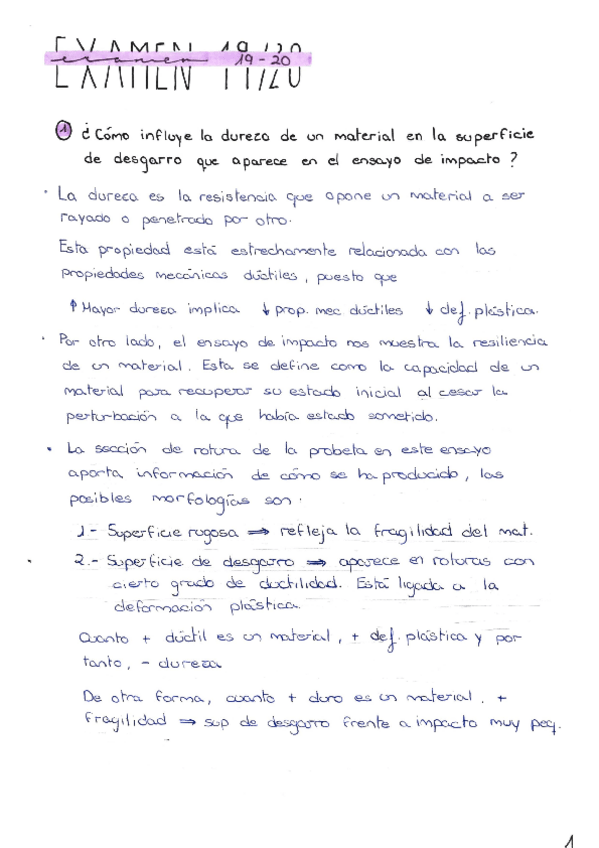 EXAMEN 19/20
examen 19-20
1 ¿Cómo influye la dureza de un material en la superficie
de desgarro que aparece en el ensayo de impacto?
· La dureza es la resistencia que opone un material a ser
rayado o penetrado por otro.
Esta propiedad está estrechamente relacionada con las
propiedades mecánicas dúctiles, puesto que
↑ Mayor dureza implica ↓ prop. mec dúctiles ↓ def. plástica.
· Por otro lado, el ensayo de impacto nos muestra la resiliencia
de un material. Esta se define como la capacidad de un
material para recuperar su estado inicial al cesar la
perturbación a la que había estado sometido.
· La sección de rotura de la probeta en este ensayo
aporta información de cómo se ha producido, las
posibles morfologías son:
1- Superficie rugosa ⇒ refleja la fragilidad del mat.
2.- Superficie de desgarro ⇒ aparece en roturas con
cierto grado de ductilidad. Está ligada a la
deformación plástica.
Cuanto + dúctil es un material, + def. plástica y por
tanto, - dureza
De otra forma, cuanto + duro es un material, +
fragilidad ⇒ sup de desgarro frente a impacto muy peq.
1